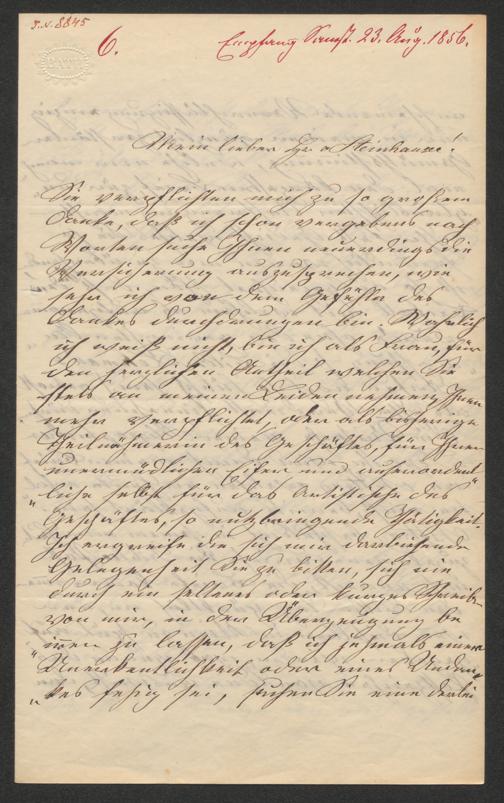 I.N. 8845
6.
Empfang Samst. 23. Aug. 1856.
BATH
Mein lieber Hr v Steinhauser!
Sie verpflichten mich zu so großem
Danke, daß ich schon vergebens nach
Worten suche Ihnen neuerdings die
Versicherung auszusprechen, wie
sehr ich von dem Gefühle des
Dankes durchdrungen bin. Wahrlich
ich weiß nicht, bin ich als Frau, für
den herzlichen Antheil welchen Sie
stets an meinen Leiden nehmen Ihnen
mehr verpflichtet, oder als bisherige
Theilnehmerin des Geschäftes, für Ihren
unermüdlichen Eifer und außerordent„
„liche selbst für das Artistische des
Geschäftes, so nutzbringende Thätigkeit.
Ich ergreife die sich mir darbiethende
Gelegenheit Sie zu bitten, sich nie
durch ein seltenes oder kurzes Schreib-
von mir, in der Überzeugung be
irren zu lassen, daß ich jemals einer
„Unerkentlichkeit oder eines Undan„
„kes fähig sei, suchen Sie eine derlei